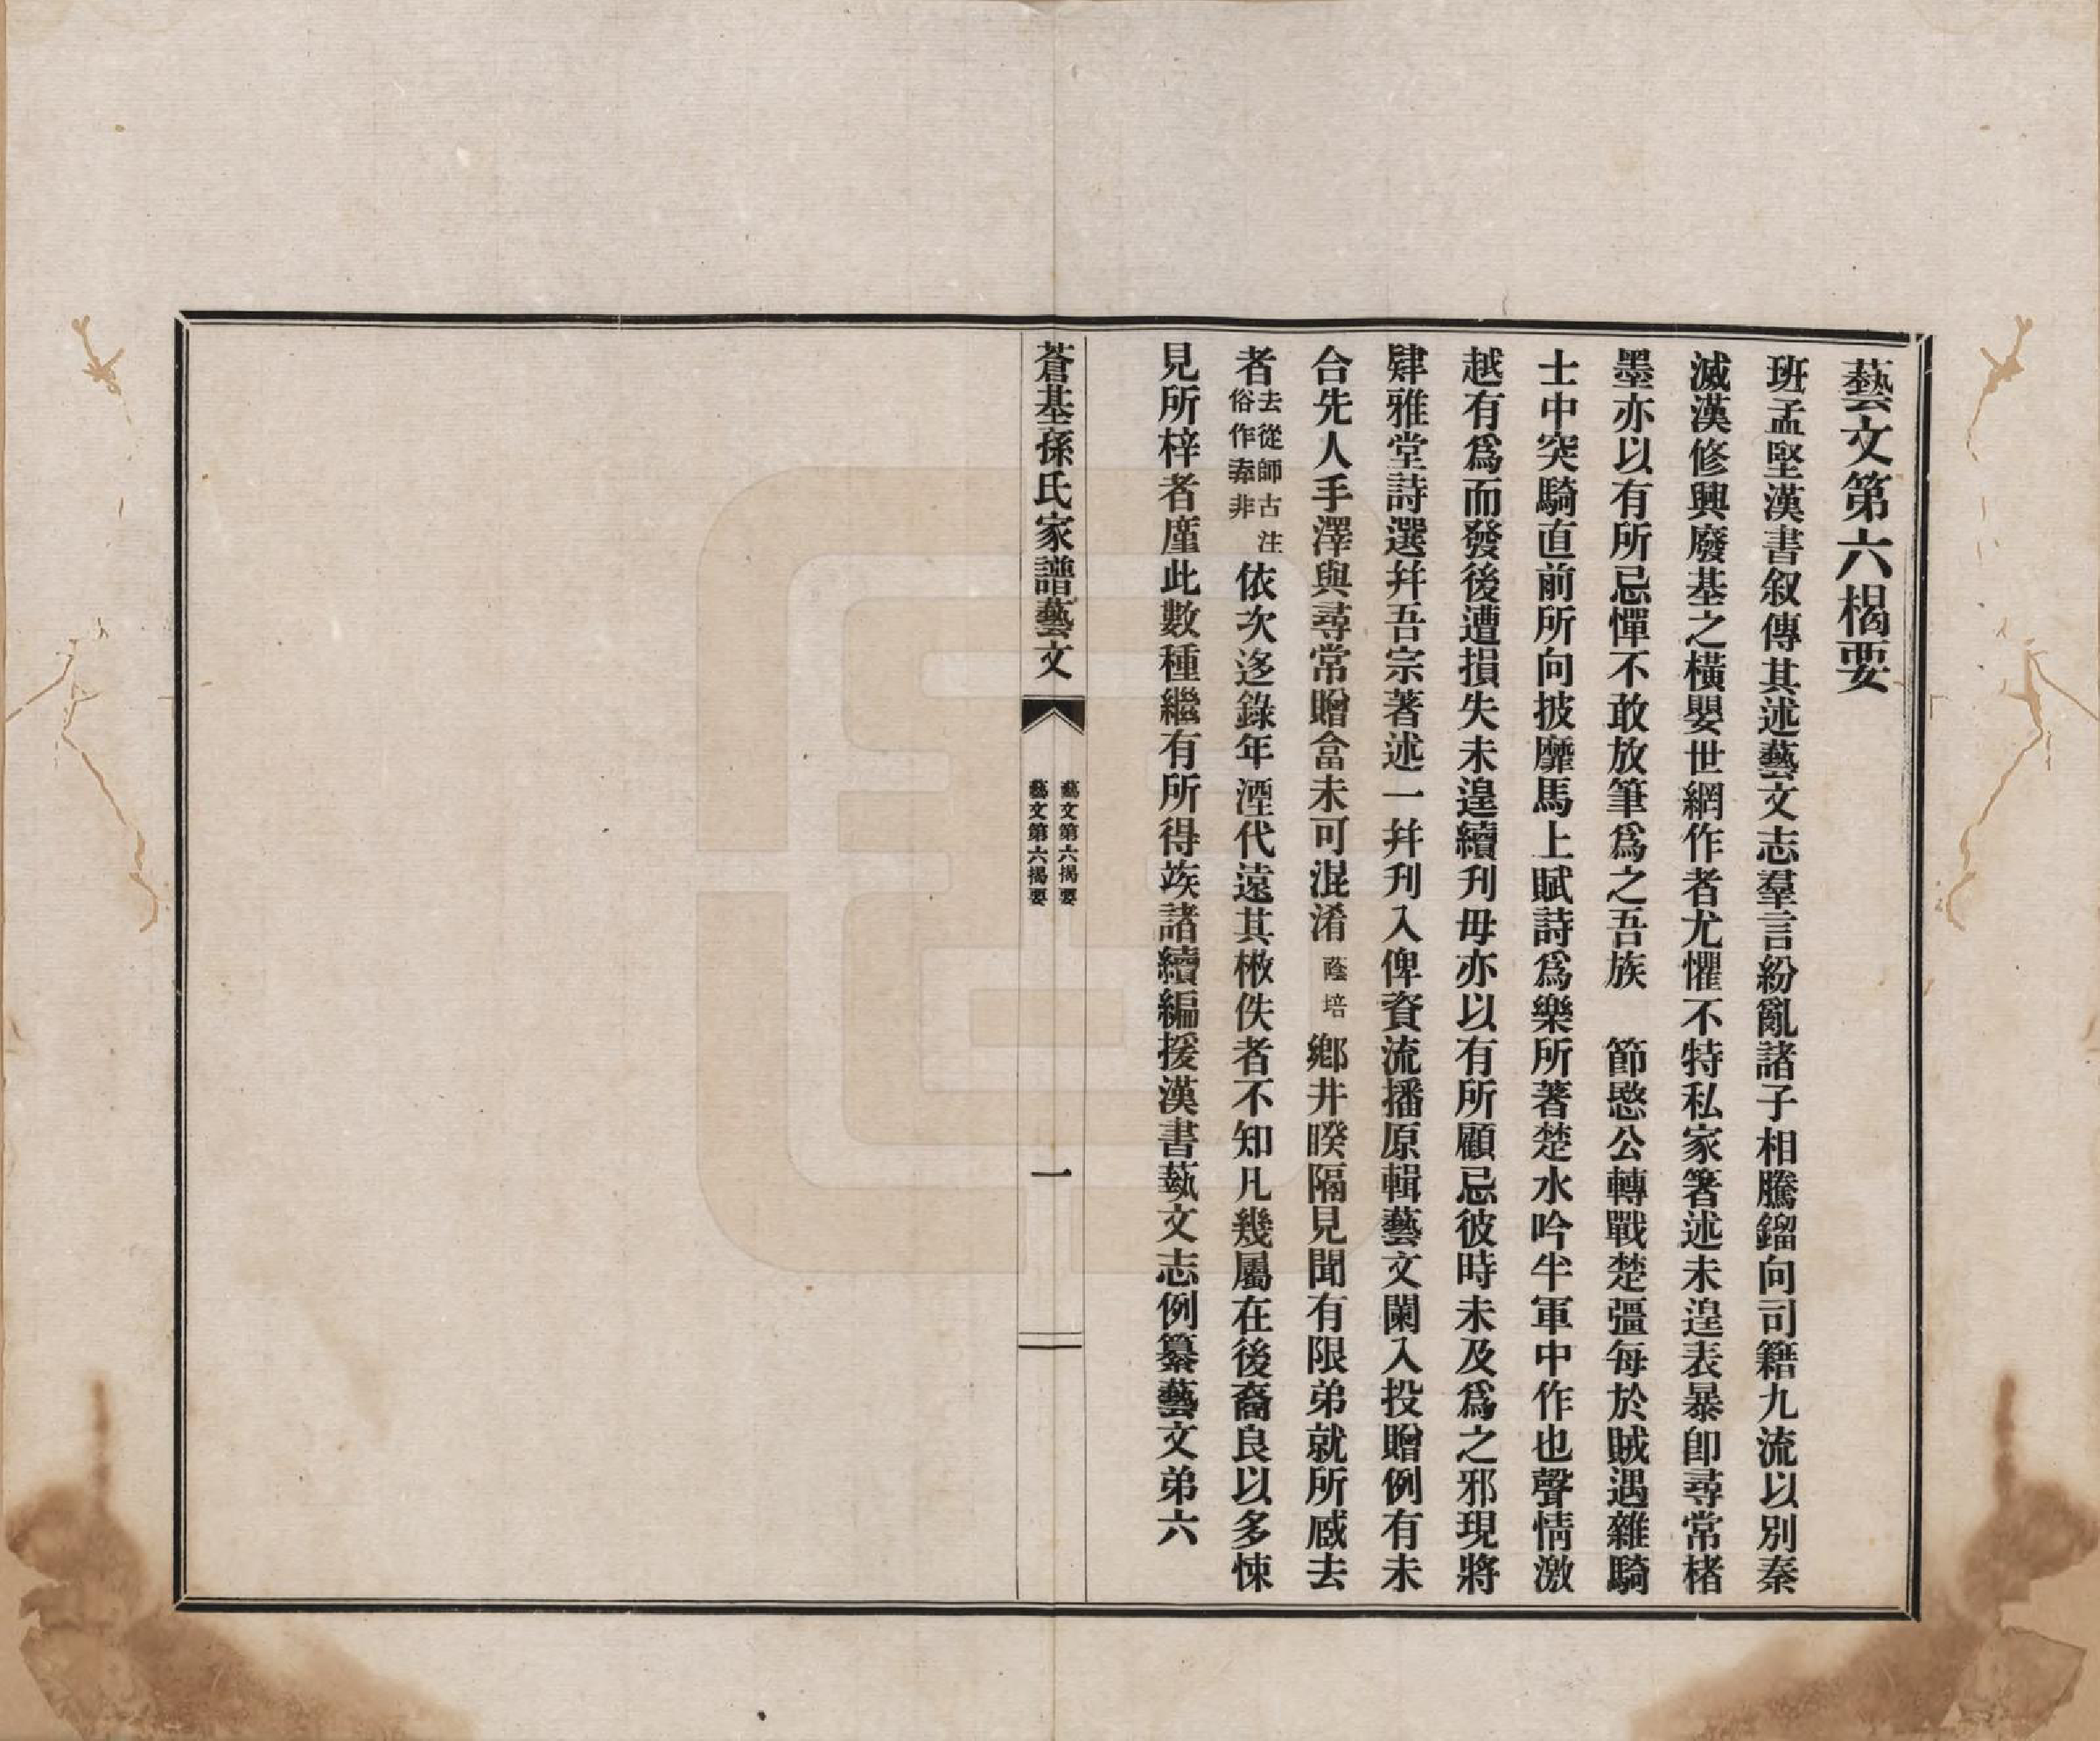 藝文第六楬要
班孟堅漢書叙傳其述藝文志羣言紛亂諸子相騰鎦向司籍九流以別秦
滅漢修興廢基之橫嬰世網作者尤懼不特私家箸述未遑表暴卽尋常楮
墨亦以有所忌憚不敢放筆爲之吾族　節愍公轉戰楚彊每於賊遇雜騎
士中突騎直前所向披靡馬上賦詩爲樂所著楚水吟半軍中作也聲情激
越有爲而發後遭損失未遑續刊毋亦以有所顧忌彼時未及爲之邪現將
肄雅堂詩選幷吾宗著述一幷刊入俾資流播原輯藝文闌入投贈例有未
合先人手澤與尋常贈畣未可混淆蔭培鄉井暌隔見聞有限弟就所臧去
者去從師古注俗作弆非依次迻錄年湮代遠其樕佚者不知凡幾屬在後裔良以多悚
見所梓者廑此數種繼有所得竢諸續編援漢書蓺文志例纂藝文弟六
蒼基孫氏家譜藝文
藝文第六揭要
藝文第六揭要
一